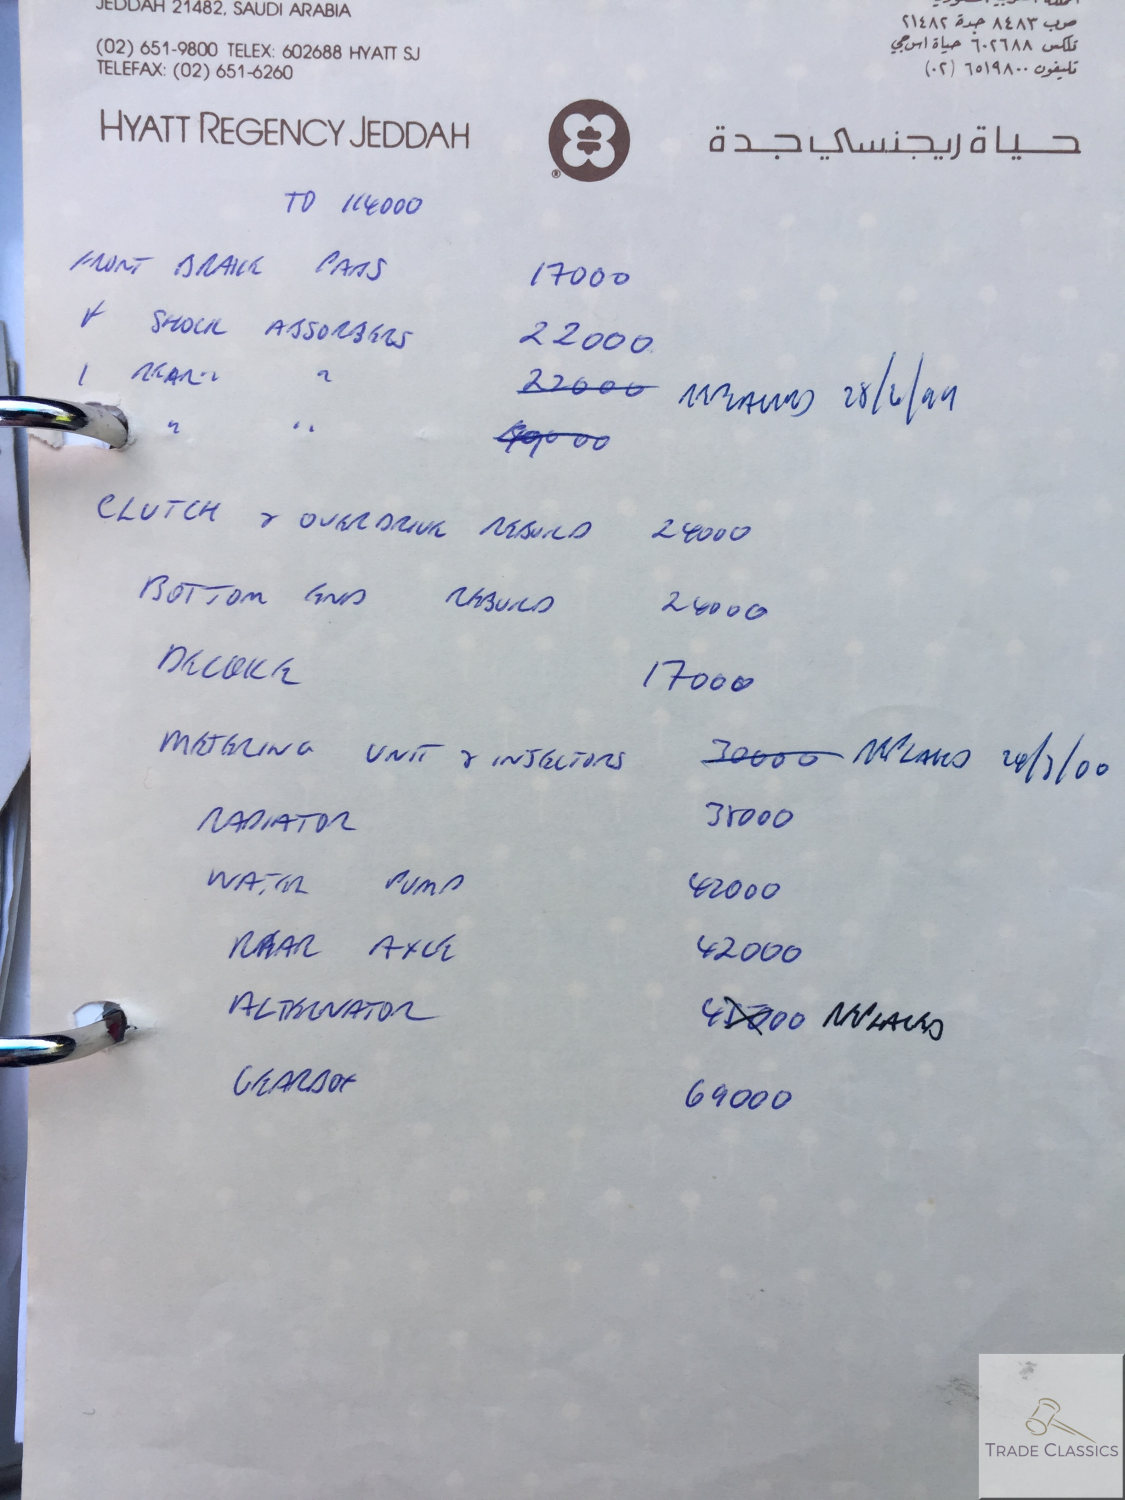 JEDDAH 21482, SAUDI ARABIA
(02) 651-9800 TELEX: 602688 HYATT SJ
TELEFAX: (02) 651-6260
ص.ب ٨٤٨٣ جدة ٢١٤٨٢
تلكس ٦٠٢٦٨٨ حياة اس جي
تليفون ٦٥١٩٨٠٠ (٠٢)
HYATT REGENCY JEDDAH
حياة ريجنسي جدة
TO 114000
FRONT BRAKE PADS 17000
SHOCK ABSORBERS 22000
1 REAR " 22000 REPLACED 28/6/99
" " 49000
CLUTCH & OVERDRIVE REBUILD 24000
BOTTOM END REBUILD 24000
DECOKE 17000
METERING UNIT & INJECTORS 30000 REPLACED 24/3/00
RADIATOR 38000
WATER PUMP 42000
REAR AXLE 42000
ALTERNATOR 45000 REPLACED
GEARBOX 69000
TRADE CLASSICS